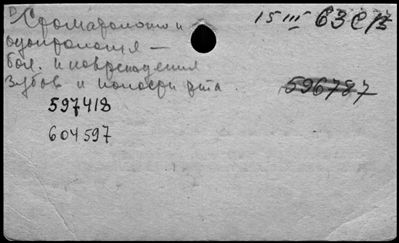 Стоматология и 15 III 63 СВ
одонтология —
бол. и повреждения
зубов и полости рта. 596787
597418
604597